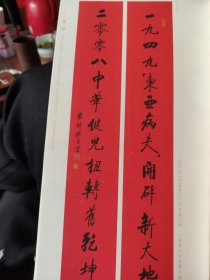 一九四九"東亞病夫"開辟新大地
二零零八中華健兒扭轉舊乾坤